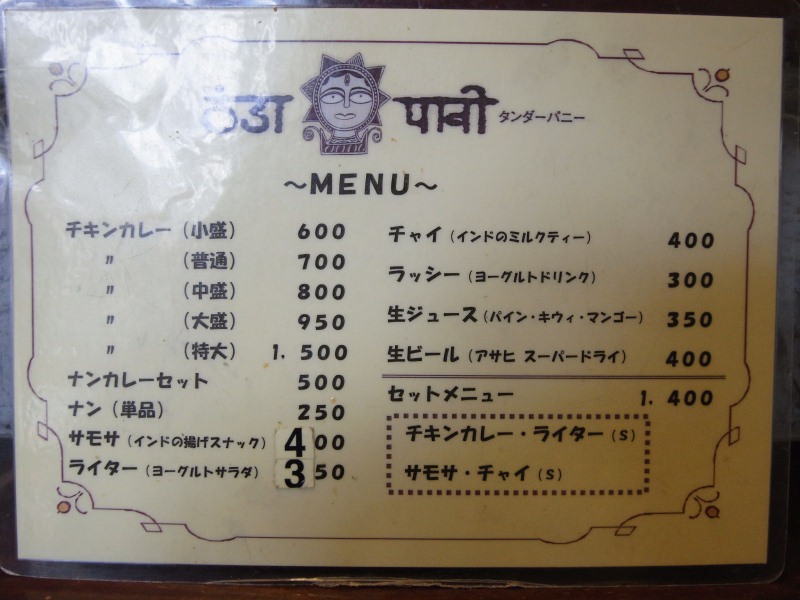 ठंडा पानी タンダーパニー
～MENU～
チキンカレー（小盛） 600
〃 （普通） 700
〃 （中盛） 800
〃 （大盛） 950
〃 （特大） 1. 500
ナンカレーセット 500
ナン（単品） 250
サモサ（インドの揚げスナック） 400
ライター（ヨーグルトサラダ） 350
チャイ（インドのミルクティー） 400
ラッシー（ヨーグルトドリンク） 300
生ジュース（パイン・キウィ・マンゴー） 350
生ビール（アサヒ スーパードライ） 400
セットメニュー 1. 400
チキンカレー・ライター（S）
サモサ・チャイ（S）